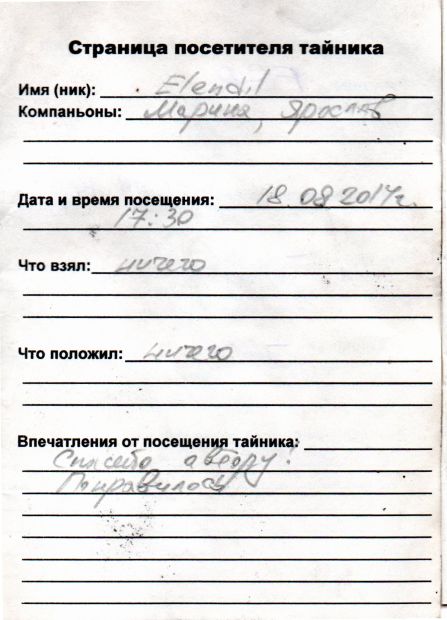 Страница посетителя тайника
Имя (ник): Elendil
Компаньоны: Марина, Ярослав
Дата и время посещения: 18.08.2014г.
17:30
Что взял: ничего
Что положил: ничего
Впечатления от посещения тайника:
Спасибо автору!
Понравилось